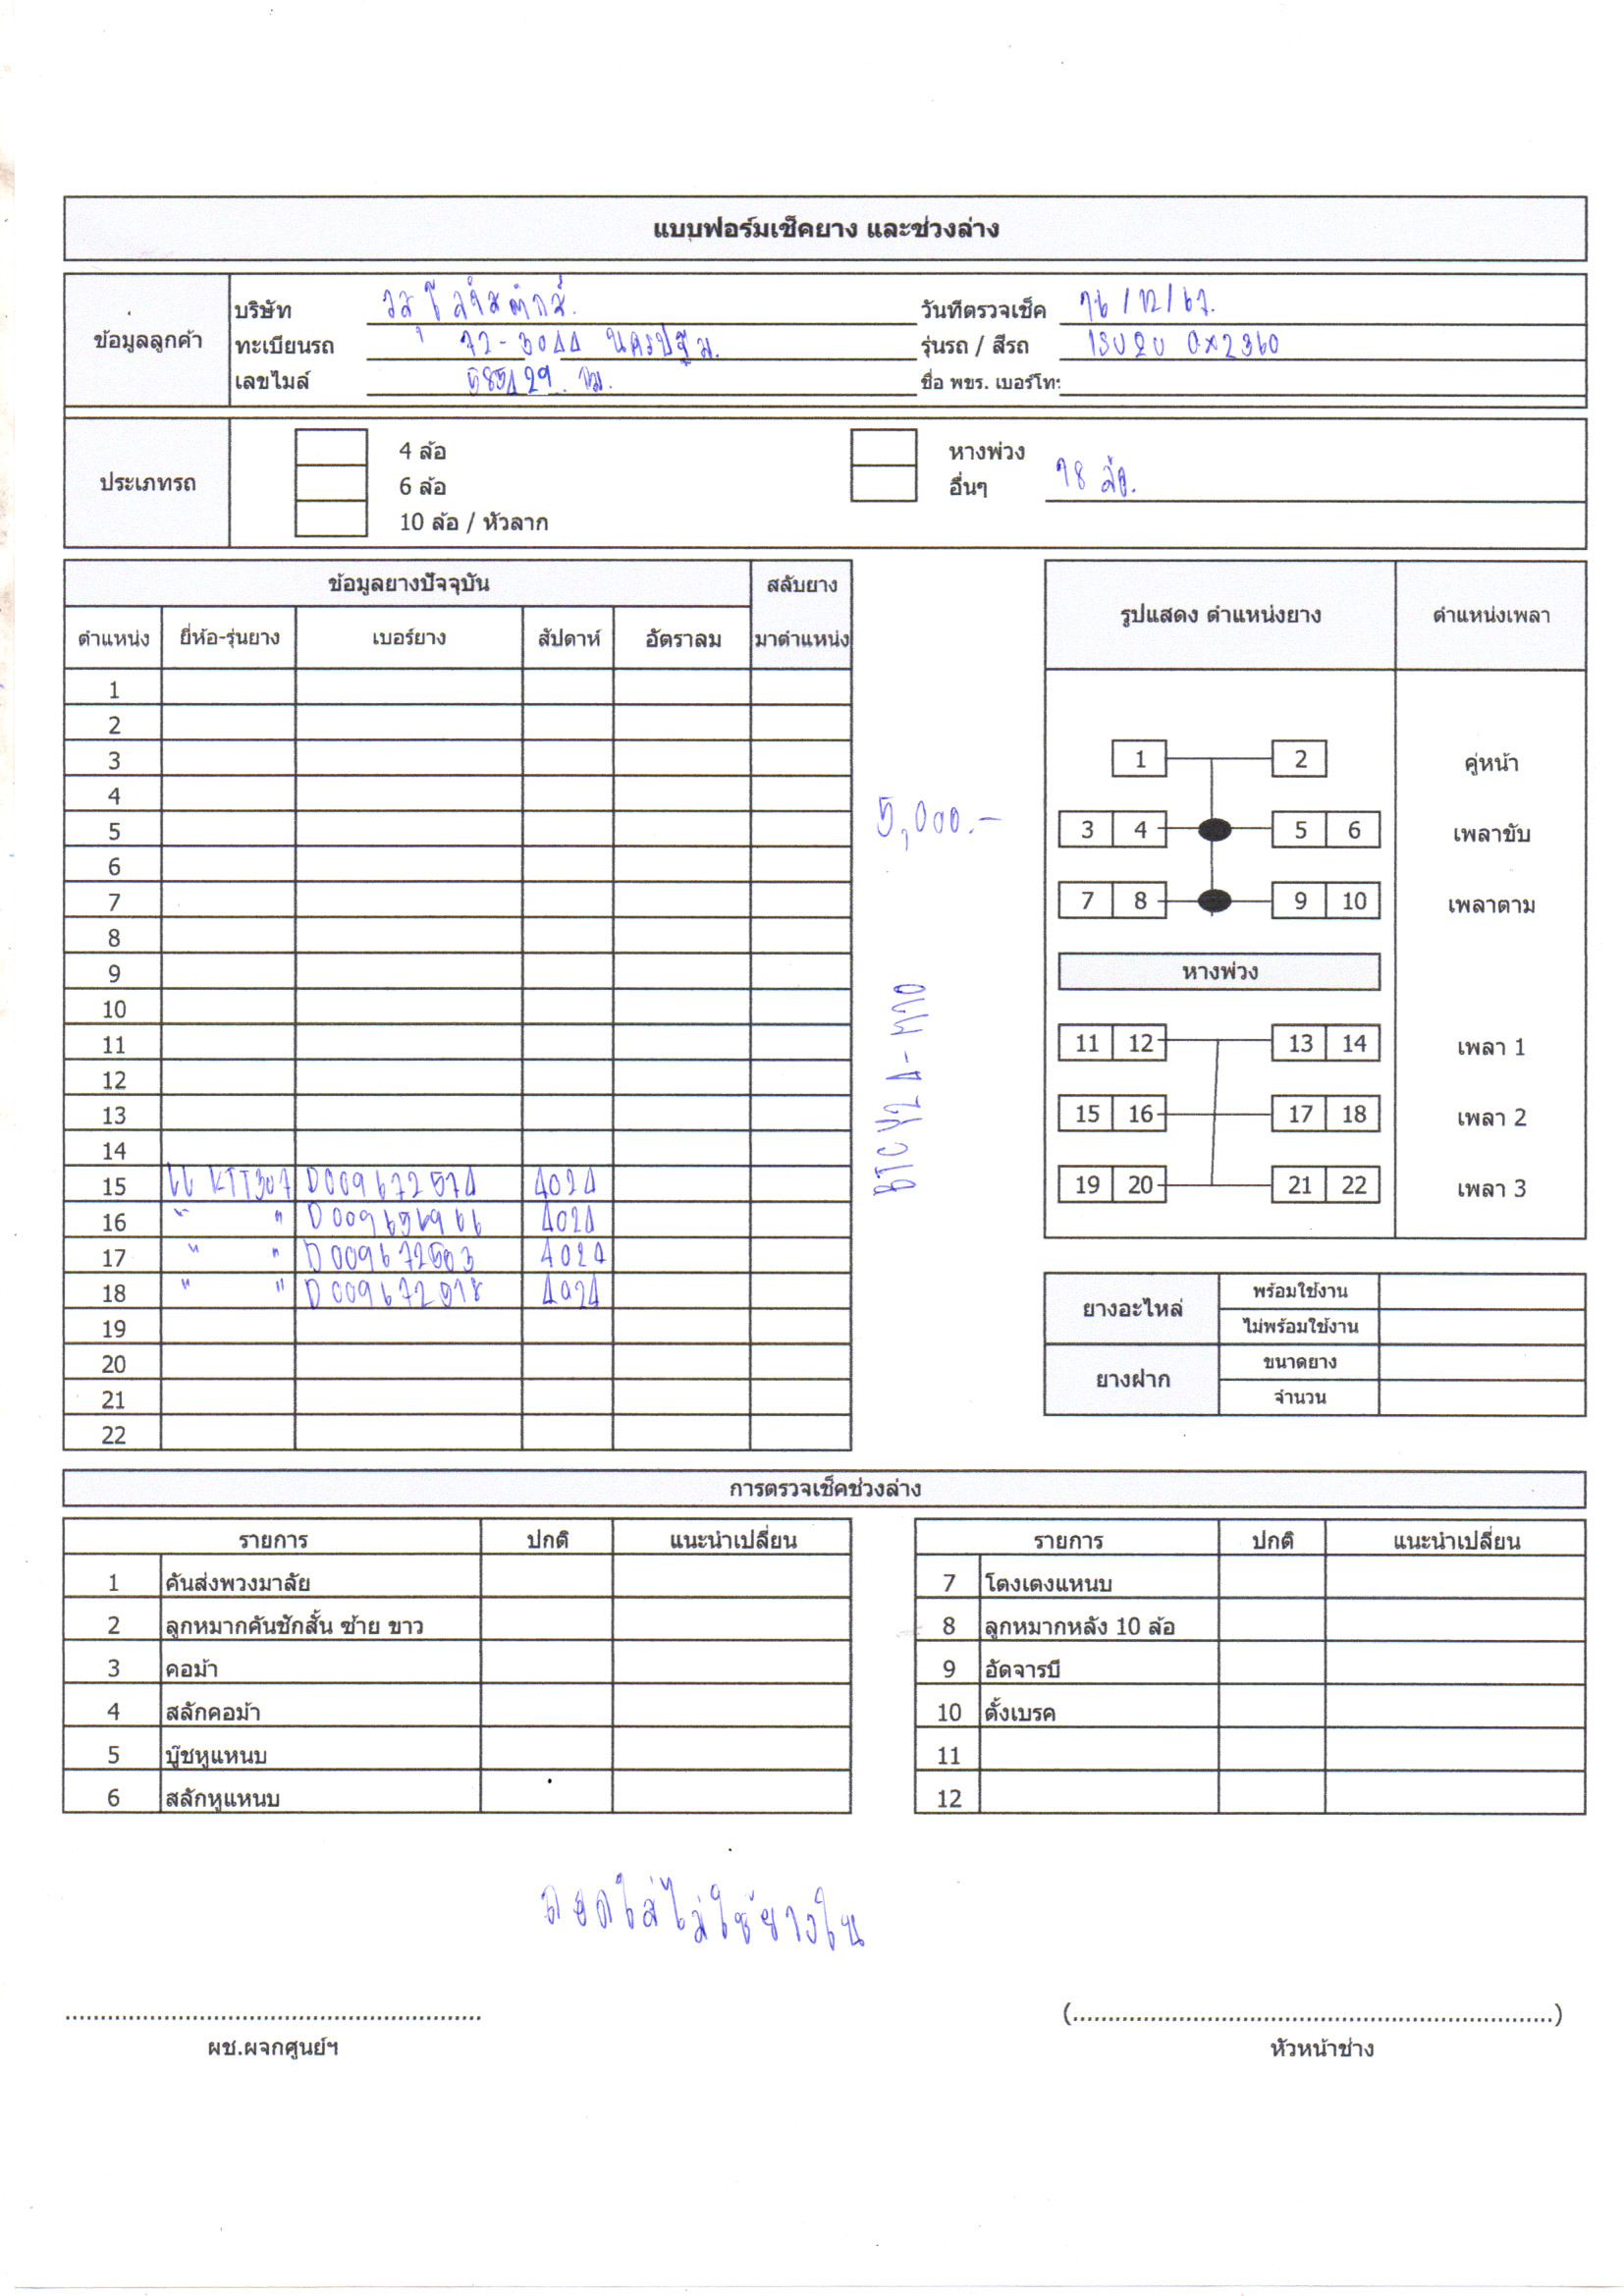 แบบฟอร์มเช็คยาง และช่วงล่าง
ข้อมูลลูกค้า
บริษัท
วันที่ตรวจเช็ค 16/12/67.
ทะเบียนรถ 72-3044 นครปฐม.
รุ่นรถ / สีรถ ISUZU GXZ360
เลขไมล์ 585429 กม.
ชื่อ พขร. เบอร์โทร
ประเภทรถ
4 ล้อ หางพ่วง
6 ล้อ อื่นๆ 18 ล้อ.
10 ล้อ / หัวลาก
ข้อมูลยางปัจจุบัน สลับยาง
ตำแหน่ง ยี่ห้อ-รุ่นยาง เบอร์ยาง สัปดาห์ อัตราลม มาตำแหน่ง
1
2
3
4
5
6
7
8
9
10
11
12
13
14
15 KTT307 D009672574 4024
16 " " 4024
17 " " D009672503 4024
18 " " D009672518 4024
19
20
21
22
5,000.-
รูปแสดง ตำแหน่งยาง ตำแหน่งเพลา
1 2 คู่หน้า
3 4 5 6 เพลาขับ
7 8 9 10 เพลาตาม
หางพ่วง
11 12 13 14 เพลา 1
15 16 17 18 เพลา 2
19 20 21 22 เพลา 3
ยางอะไหล่ พร้อมใช้งาน
ไม่พร้อมใช้งาน
ยางฝาก ขนาดยาง
จำนวน
การตรวจเช็คช่วงล่าง
รายการ ปกติ แนะนำเปลี่ยน
1 คันส่งพวงมาลัย
2 ลูกหมากคันชักสั้น ซ้าย ขาว
3 คอม้า
4 สลักคอม้า
5 บู๊ชหูแหนบ
6 สลักหูแหนบ
รายการ ปกติ แนะนำเปลี่ยน
7 โตงเตงแหนบ
8 ลูกหมากหลัง 10 ล้อ
9 อัดจารบี
10 ตั้งเบรค
11
12
ถอดใส่ไม่ใช้ยางใน
ผช.ผจกศูนย์ฯ
(................................................................)
หัวหน้าช่าง